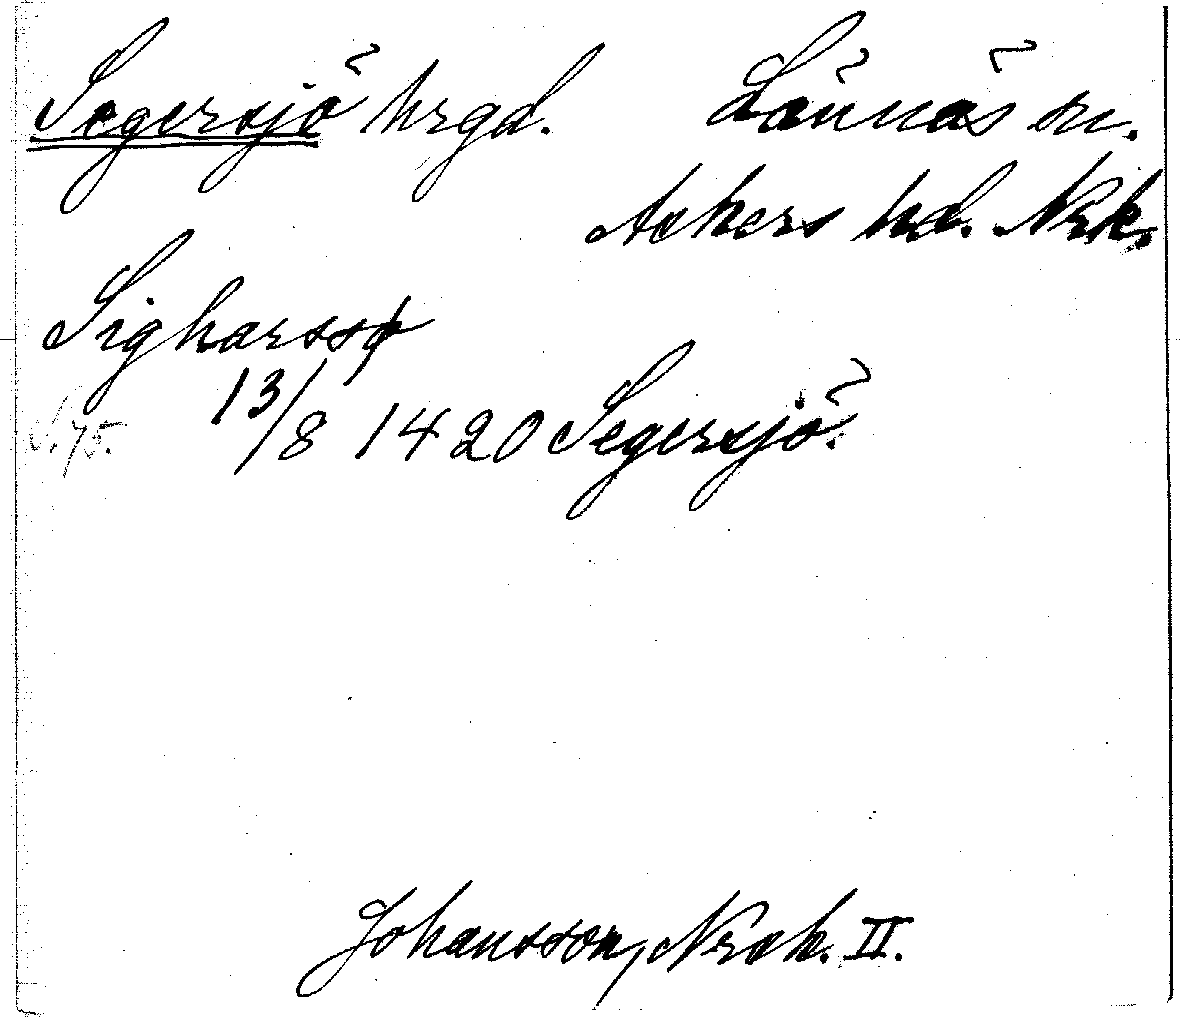 Segersjö hrgd. Lännäs sn.
Askers hd. Nrk.
Sigharssø
S. 75. 13/8 1420 Segersjö.
Johansson, Nrck. II.